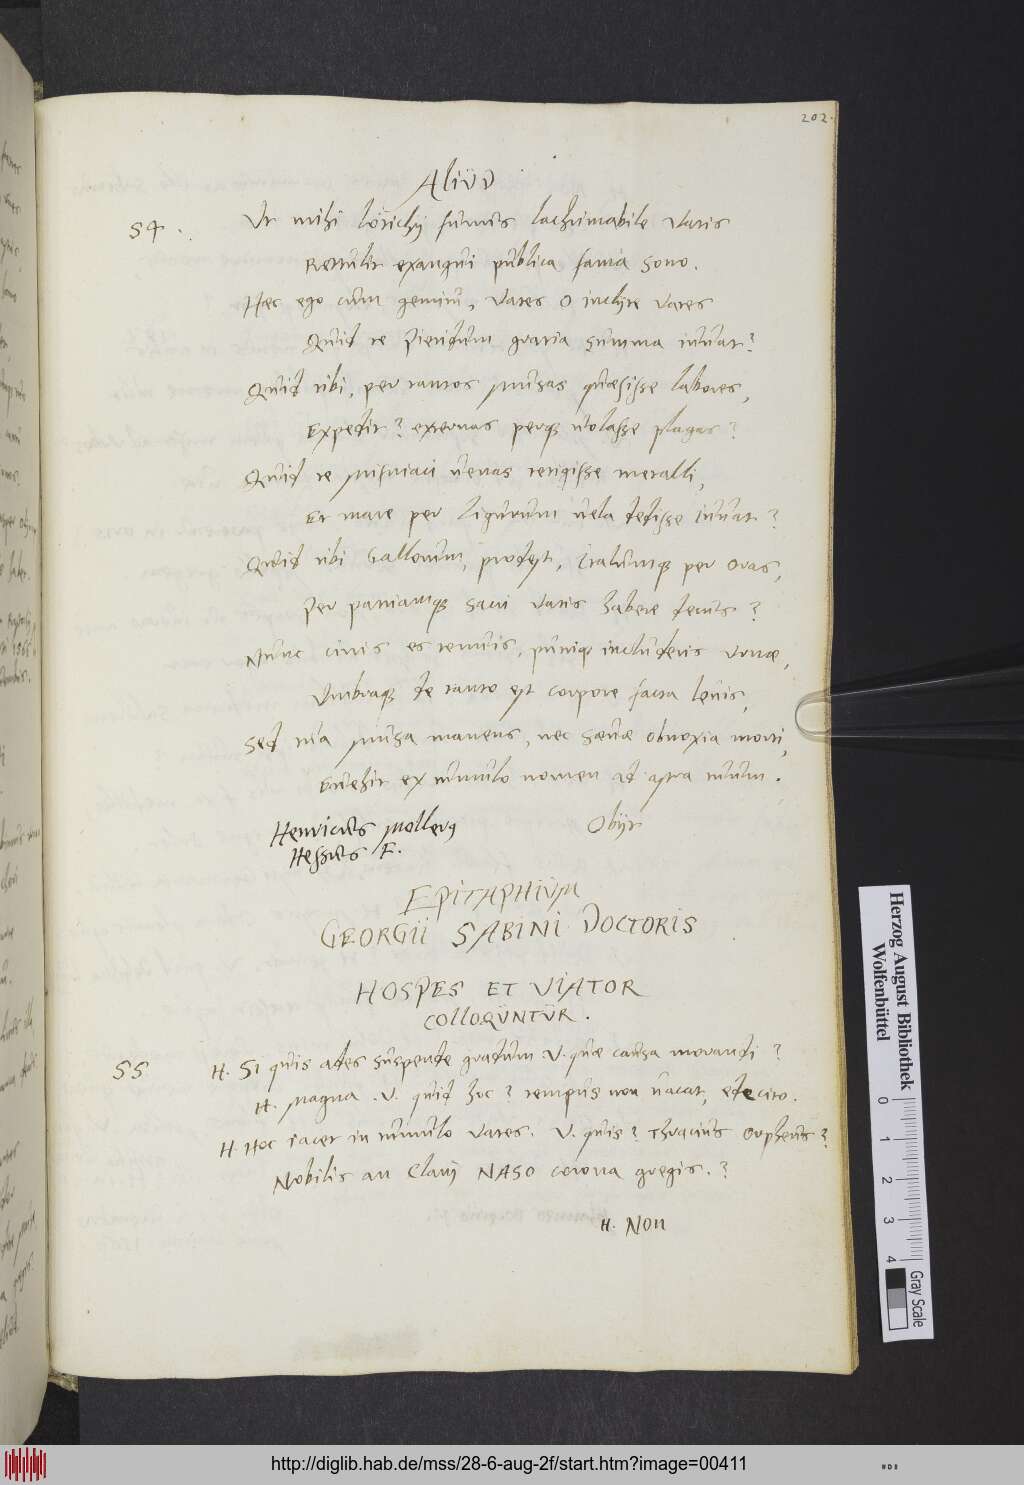 202.
ALIUD
54. Ut mihi Lorichij funus lachrimabile Vatis
Rettulit exangui publica fama sono.
Hæc ego cum gemitu, Vates o inclyte Vates
Quid te Pieridum gratia summa iuvat?
Quid tibi, per tantos Musas quæsisse labores,
Expedit? externas perque volasse plagas?
Quid te Misniaci venas tetigisse metalli,
Et mare per Ligurum vela dedisse iuvat?
Quid tibi Gallorum, prodest, Italumque per oras,
Per patriamque sacri Vatis habere decus?
Nunc cinis es tenuis, parvaque includeris urnæ,
Umbraque de tanto est corpore facta levis,
Sed tua Musa manens, nec sævæ obnoxia morti,
Evehit ex tumulo nomen ad astra tuum.
Henricus Mollerus
Hessus F.
Obijt
EPITAPHIUM
GEORGII SABINI DOCTORIS
HOSPES ET VIATOR
COLLOQUNTUR.
55 H. Si quis ades suspende gradum V. quæ causa morandi?
H. Magna. V. quid hoc? tempus non vacat, ede cito.
H. Hoc iacet in tumulo Vates. V. quis? Thracius Orpheus?
Nobilis an Clarij NASO corona gregis.?
H. Non
Herzog August Bibliothek
Wolfenbüttel
0 1 2 3 4
Gray Scale
http://diglib.hab.de/mss/28-6-aug-2f/start.htm?image=00411